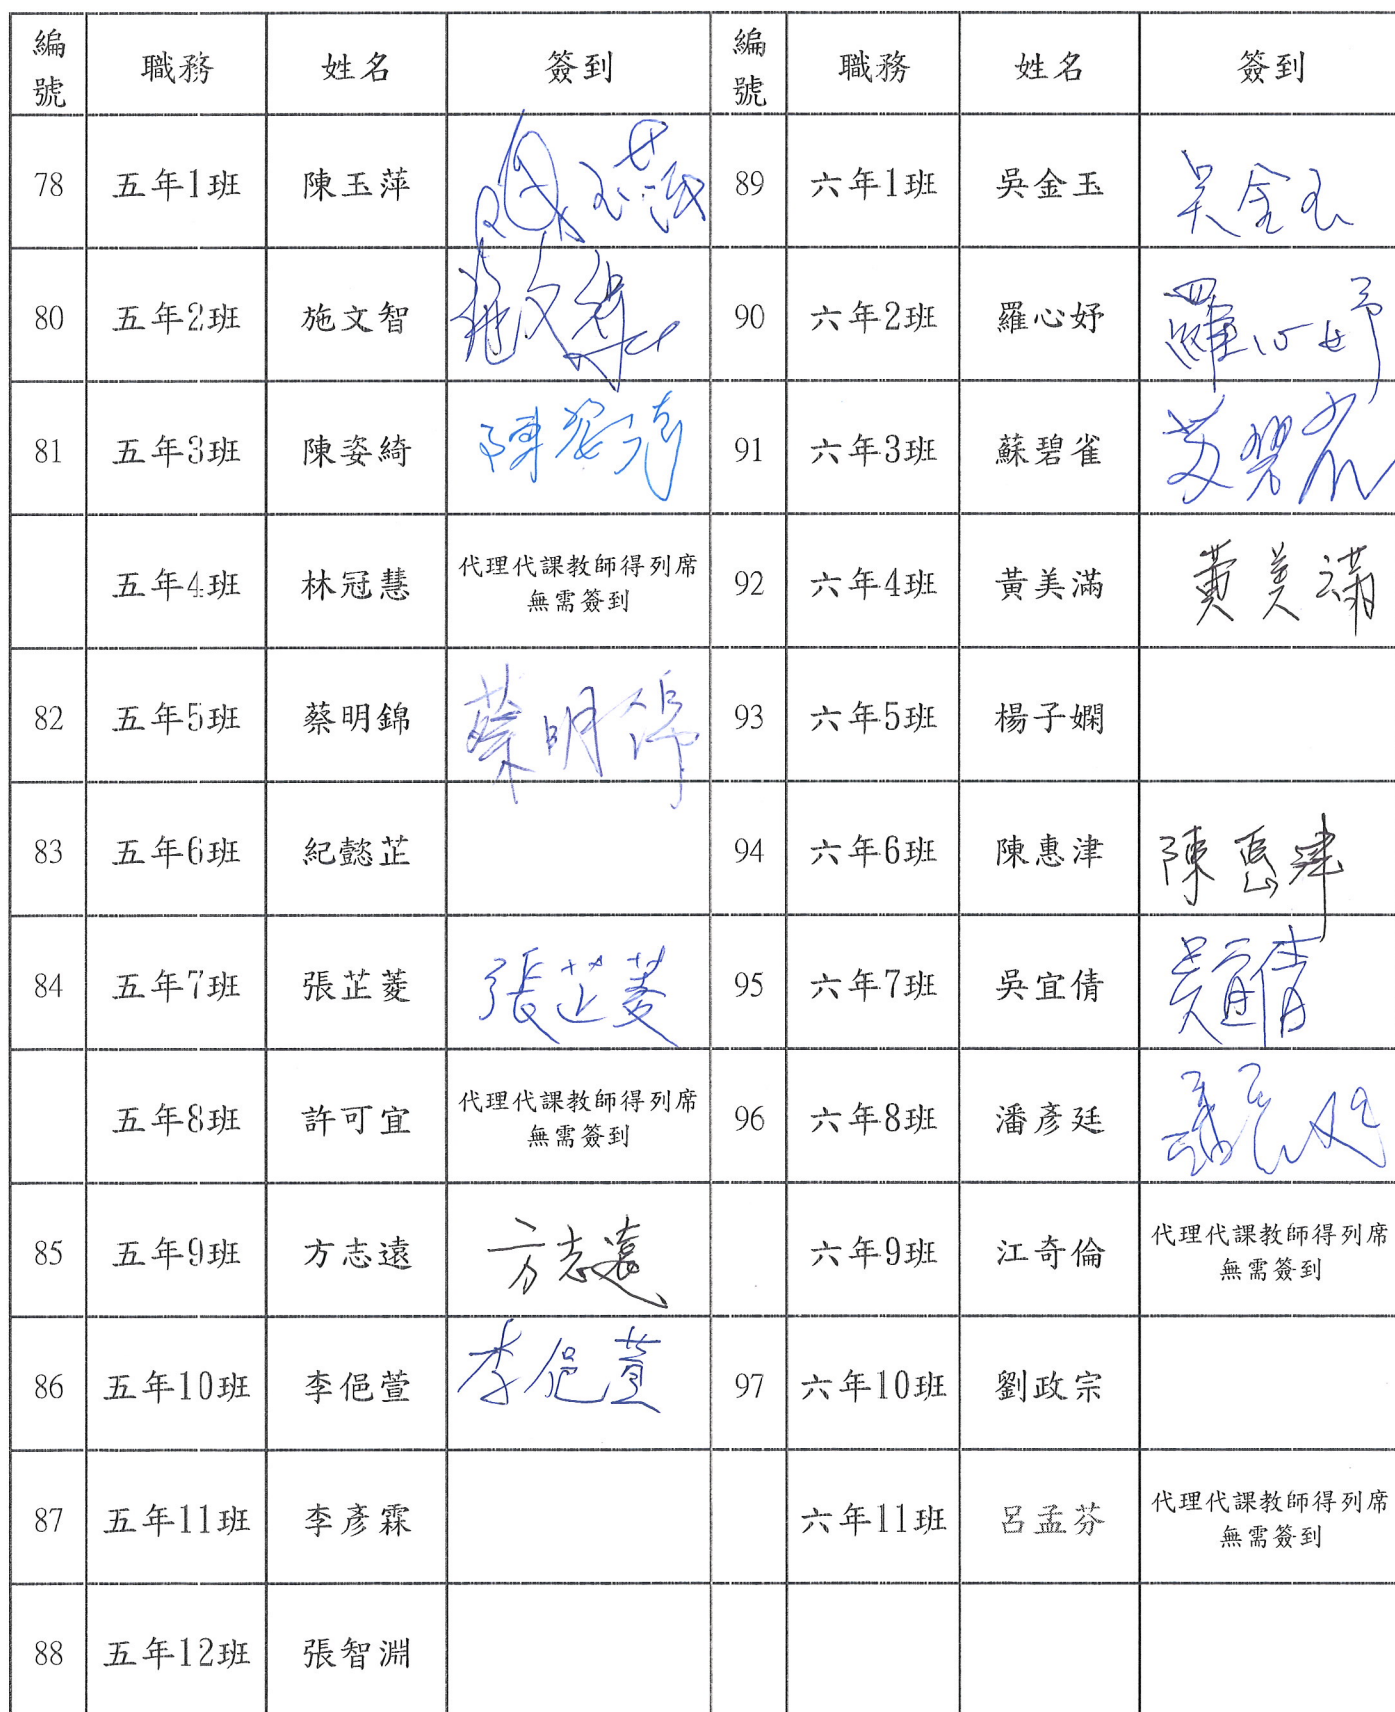 編號 職務 姓名 簽到 編號 職務 姓名 簽到
78 五年1班 陳玉萍 陳玉萍 89 六年1班 吳金玉 吳金玉
80 五年2班 施文智 施文智 90 六年2班 羅心妤 羅心妤
81 五年3班 陳姿綺 陳姿綺 91 六年3班 蘇碧雀 蘇碧雀
五年4班 林冠慧 代理代課教師得列席 無需簽到 92 六年4班 黃美滿 黃美滿
82 五年5班 蔡明錦 蔡明錦 93 六年5班 楊子嫻
83 五年6班 紀懿芷 94 六年6班 陳惠津 陳惠津
84 五年7班 張芷菱 張芷菱 95 六年7班 吳宜倩 吳宜倩
五年8班 許可宜 代理代課教師得列席 無需簽到 96 六年8班 潘彥廷 潘彥廷
85 五年9班 方志遠 方志遠 六年9班 江奇倫 代理代課教師得列席 無需簽到
86 五年10班 李俋萱 李俋萱 97 六年10班 劉政宗
87 五年11班 李彥霖 六年11班 呂孟芬 代理代課教師得列席 無需簽到
88 五年12班 張智淵